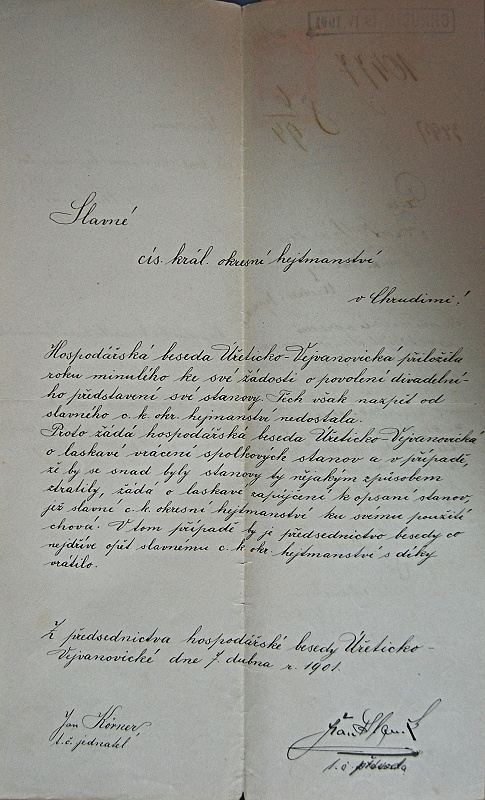 Slavné
cís. král. okresní hejtmanství
v Chrudimi!
Hospodářská beseda Úřeticko-Vejvanovická přiložila
roku minulého ke své žádosti o povolení divadelní-
ho představení své stanovy. Těch však nazpět od
slavného c. k. okr. hejmanství nedostala.
Proto žádá hospodářská beseda Úřeticko-Vejvanovická
o laskavé vrácení spolkových stanov a v případě,
že by se snad byly stanovy ty nějakým způsobem
ztratily, žádá o laskavé zapůjčení k opsání stanov,
jež slavné c. k. okresní hejtmanství ku svému použití
chová. V tom případě by je předsednictvo besedy co
nejdříve opět slavnému c. k. okr. hejtmanství s díky
vrátilo.
Z předsednictva hospodářské besedy Úřeticko-
Vejvanovické dne 7. dubna r. 1901.
Jan Körner
t. č. jednatel
Jan
t. č. předseda